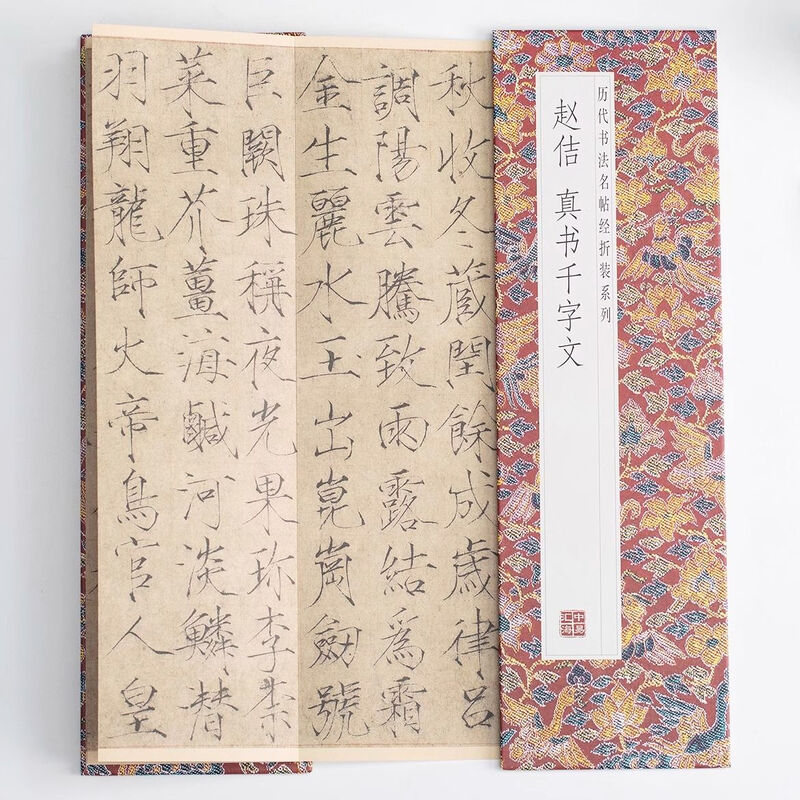 历代书法名帖经折装系列
赵佶 真书千字文
中易
汇海
秋收冬蔵閏餘成歲律吕
調陽雲騰致雨露結爲霜
金生麗水玉出崑崗劔號
巨闕珠稱夜光果珍李柰
菜重芥薑海鹹河淡鱗潜
羽翔龍師火帝鳥官人皇